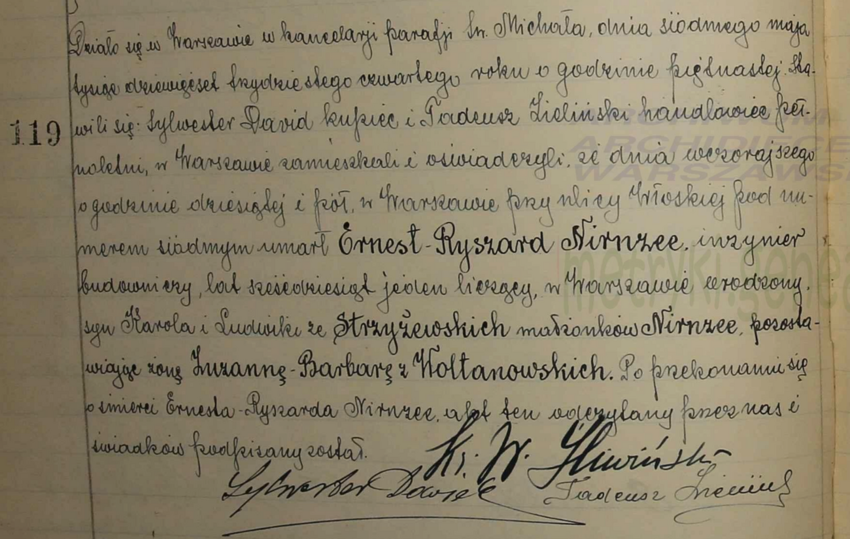 Działo się w Warszawie w kancelarji parafji Św. Michała, dnia siódmego maja
tysiąc dziewięćset trzydziestego czwartego roku o godzinie piętnastej. Sta-
119 wili się: Sylwester David kupiec i Tadeusz Zieliński handlowiec peł-
noletni, w Warszawie zamieszkali i oświadczyli, że dnia wczorajszego
o godzinie dziesiątej i pół, w Warszawie przy ulicy Włoskiej pod nu-
merem siódmym umarł Ernest-Ryszard Nirnzee, inżynier
budowniczy, lat sześćdziesiąt jeden liczący, w Warszawie urodzony,
syn Karola i Ludwiki ze Strzyżewskich małżonków Nirnzee, pozosta-
wiając żonę Zuzannę-Barbarę z Wołtanowskich. Po przekonaniu się
o śmierci Ernesta-Ryszarda Nirnzee, akt ten odczytany przez nas i
świadków podpisany został.
Ks. W. Śliwiński
Sylwester David Tadeusz Zieliński
ARCHIDIECE
WARSZAWS
metryki.gene